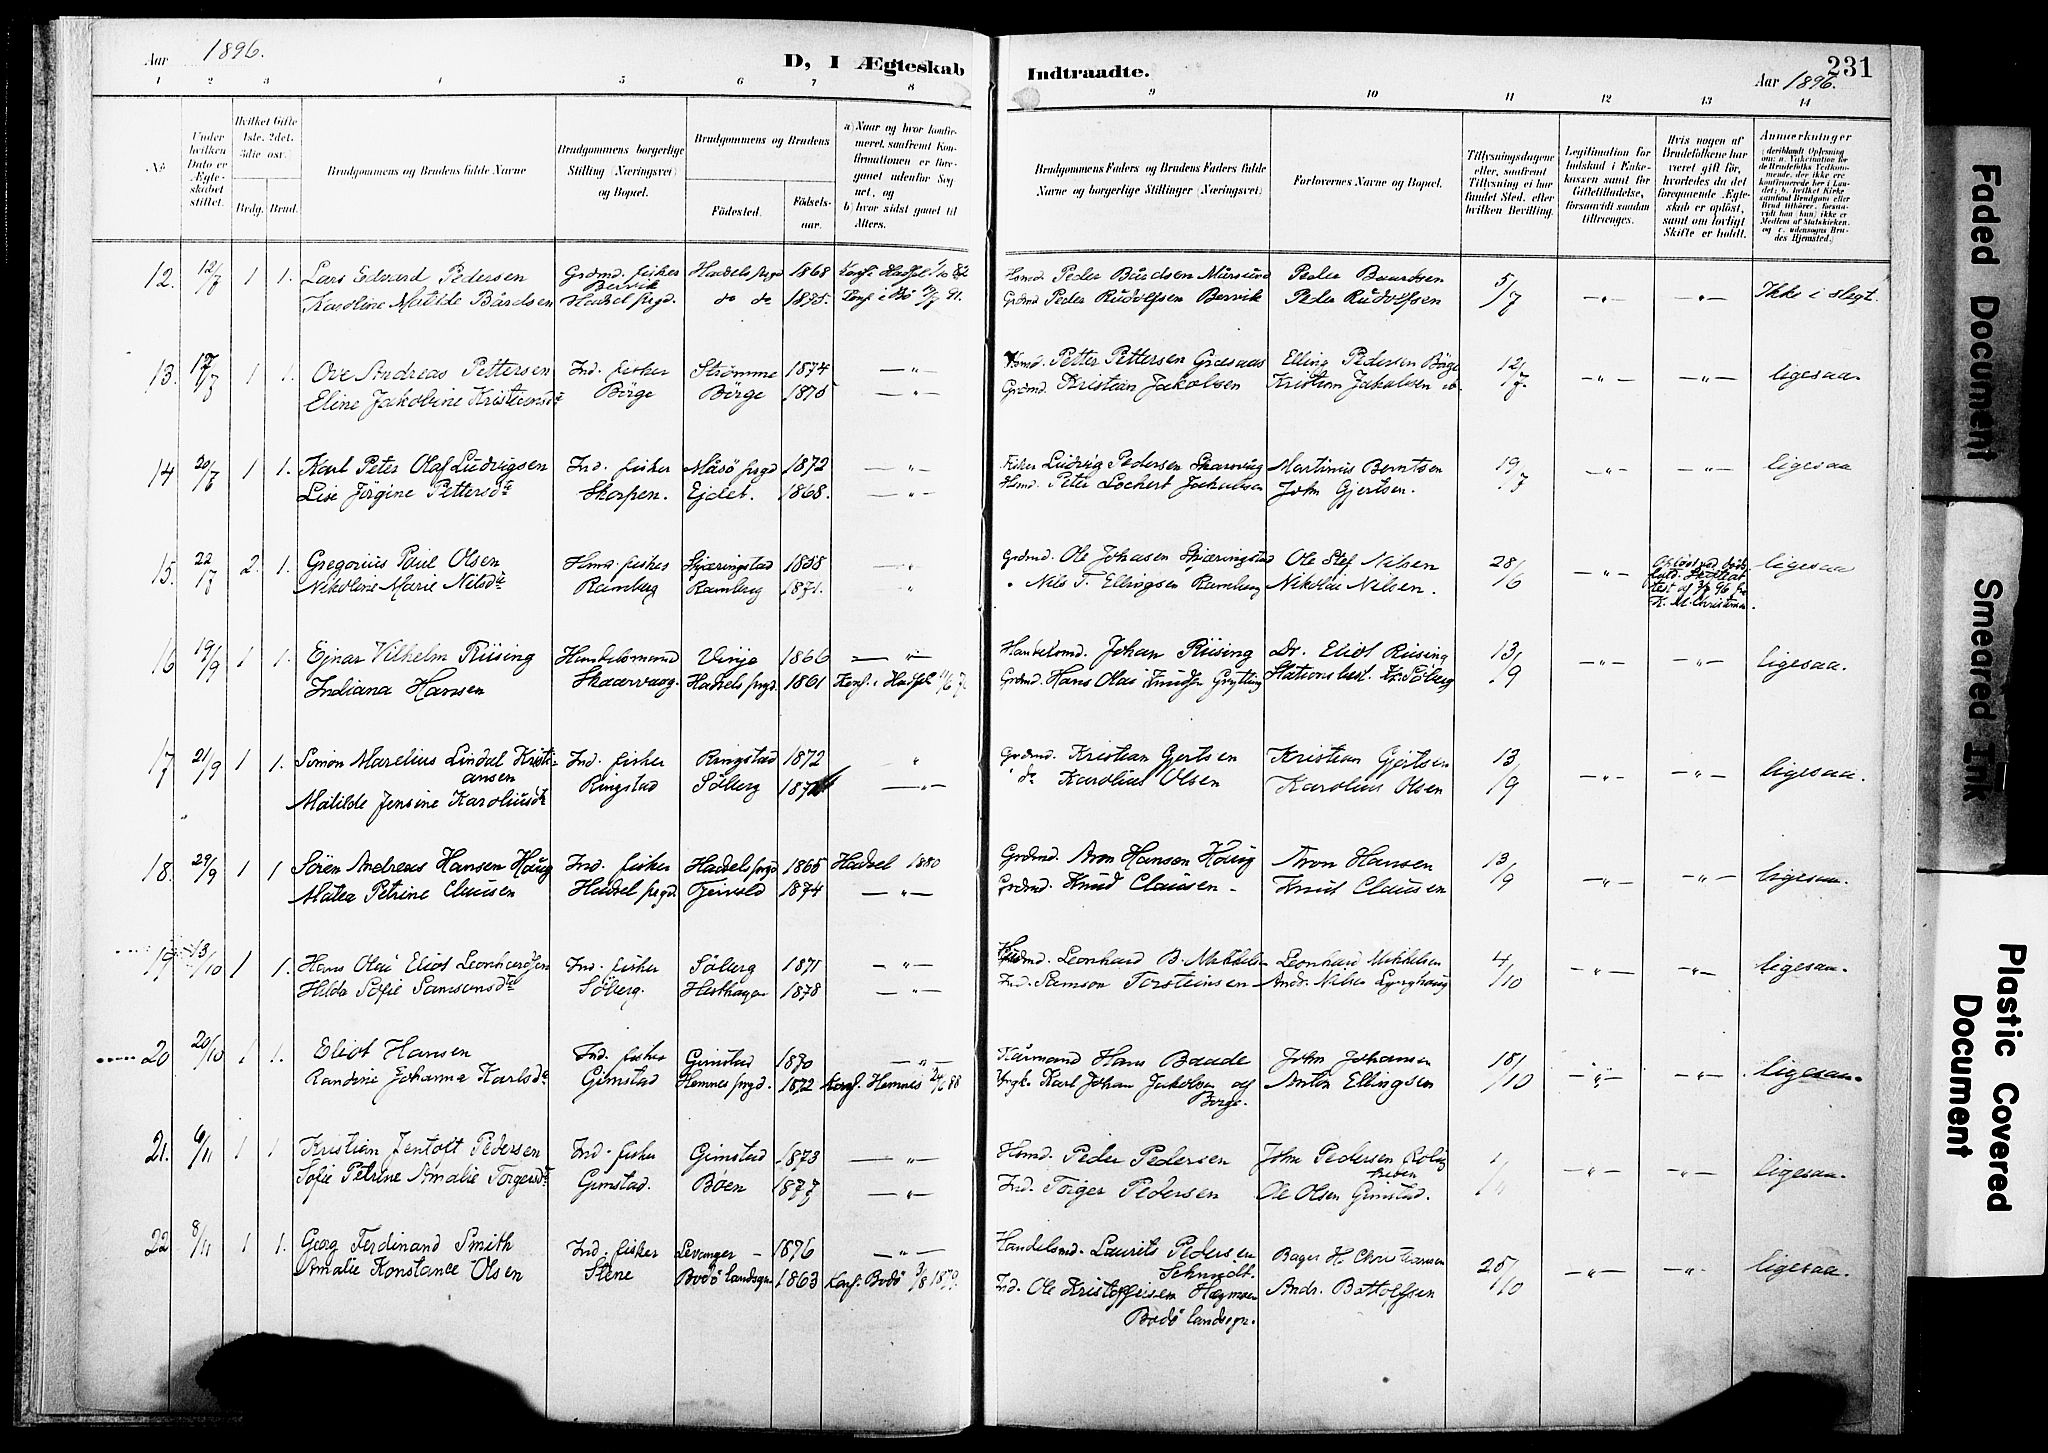 Aar 1896.
D, I Ægteskab Indtraadte.
231
Aar 1896.
1 2 3 4 5 6 7 8 9 10 11 12 13 14
No.
Under hvilken Dato er Ægteskabet stiftet.
Hvilket Gifte 1ste, 2det, 3die osv.
Bedg. Brud.
Brudgommens og Brudens fulde Navne
Brudgommens borgerlige Stilling (Næringsvei) og Bopæl.
Brudgommens og Brudens
Födested. Födselsaar.
a) Naar og hvor konfirmeret, saafremt Konfirmationen er foregaaet udenfor Sognet, og
b) hvor sidst gaaet til Alters.
Brudgommens Faders og Brudens Faders fulde Navne og borgerlige Stillinger (Næringsvei)
Forlovernes Navne og Bopæl.
Tillysningsdagene eller, saafremt Tillysning ei har fundet Sted, efter hvilken Bevilling.
Legitimation for Indskud i Enkekassen samt for Giftetilladelse, forsaavidt saadan tiltrænges.
Hvis nogen af Brudefolkene har været gift før, hvorledes da det foregaaende Ægteskab er opløst, samt om lovligt Skifte er holdt.
Anmærkninger
12. 12/7 1 1. Lars Edvard Pedersen Grdmd. fisker Hadsels prgd 1868 Konf. Hadsel Hsmd. Peder Bårdsen Peder Baardsen 5/7 —"— —"— Ikke i slegt.
Karoline Matilde Bårdsen Bervik Hadsel prgd. do do 1875. Konf. i Bø Grdmd Peder Rudolfsen Bervik Peder Rudolfsen
13. 17/7 1 1. Ove Andreas Pettersen Ind. fisker Strømme 1874 —"— Hsmd. Petter Pettersen Elling Pedersen Börge 12/7. —"— —"— ligesaa.
Eline Jakobine Kristiansd Börge Börge 1875 —"— Grdmd. Kristian Jakobsen Kristian Jakobsen
14 20/7 1 1. Karl Peter Olaf Ludvigsen Ind. fisker Måsö prgd 1872 —"— Fisker Ludvig Pedersen Skarvvåg Martinus Berntsen 19/7 —"— —"— ligesaa
Lise Jörgine Pettersd Skorpen. Eidet. 1868. —"— Hsmd. Peter Lochert Jakobsen John Gjertsen.
15. 22/7 2. 1. Gregorius Poul Olsen Hsmd. fisker Skjæringstad 1858 " Grdmd. Ole Johasen Skjæringstad Ole Stef Nilsen 28/6 —"— ligesaa
Nikoline Marie Nilsd Ramberg Ramberg 1871. " " Nils T. Ellingsen Ramberg Nikolai Nilsen.
16 19/9 1 1. Ejnar Vilhelm Riising Handelsmand Vinje 1866 —"— Handelsmd. Johan Riising Dr. Eliot Riising 13/9 —"— —"— ligesaa.
Indiana Hansen Skaarvaag. Hadsels prgd. 1861 Konf. i Hadsel Grdmd. Hans Olai Knudsen Grytting Stationsbest. Söberg
17 21/9 1 1. Simon Marelius Lindal Kristi- Ind. fisker Ringstad 1872 " Grdmd. Kristian Gjertsen Kristian Gjertsen 13/9 —"— —"— ligesaa.
ansen
Matilde Jensine Karoliusd Ringstad Söberg 187 —"— do Karolius Olsen Karolius Olsen
18. 29/9 1 1 Sören Andreas Hansen Haug Ind. fisker Hadsels prgd 1865 Hadsel 1880 Grdmd. Aron Hansen Haug Aron Hansen 13/9 —"— —"— ligesaa.
Matea Petrine Clausen Hadsel prgd. 1874 —"— Grdmd. Knud Clausen - Knud Clausen
19 13/10 1 1. Hans Olai Eliot Leonhardsen Ind. fisker Söberg 1871 —"— Leonhard B. Mikkelsen Leonhard Mikkelsen 4/10 —"— —"— ligesaa.
Hilda Sofie Samsonsd Söberg. Hesthagen 1878 —"— Ind. Samson Torsteinsen Andr. Nilsen Lynghaug
20 20/10 1 1. Eliot Hansen Ind. fisker Gimstad 1870 —"— Kårmand Hans Baade John Johansen 18/10 —"— —"— ligesaa.
Randine Johanna Karlsd Gimstad Hemnes prgd. 1872 Konf. Hemnes 24/6 88 Karl Johan Jakobsen af Anton Ellingsen
Borge.
21. 6/11 1 1 Kristian Jentoft Pedersen Ind. fisker Gimstad 1873 —"— Hsmd. Peder Pedersen John Pedersen 1/11 —"— —"— ligesaa.
Sofie Petrine Amalie Torgersd Gimstad. Bøen 1877 —"— Ind. Torger Pedersen Ole Olsen Gimstad.
22 8/11 1 1. Georg Ferdinand Smith Ind. fisker Levanger - 1876 —"— Handelsmd. Laurits Pedersen Bager H. Christiansen 25/10 —"— —"— ligesaa.
Schmidt.
Amalie Konstance Olsen Stene Bodø landsogn 1863 Konf. Bodø 3/8 1879. Ind. Ole Kristoffersen Andr. Bottolfsen
Bodø landsogn.
Faded Document
Smeared Ink
Plastic Covered Document